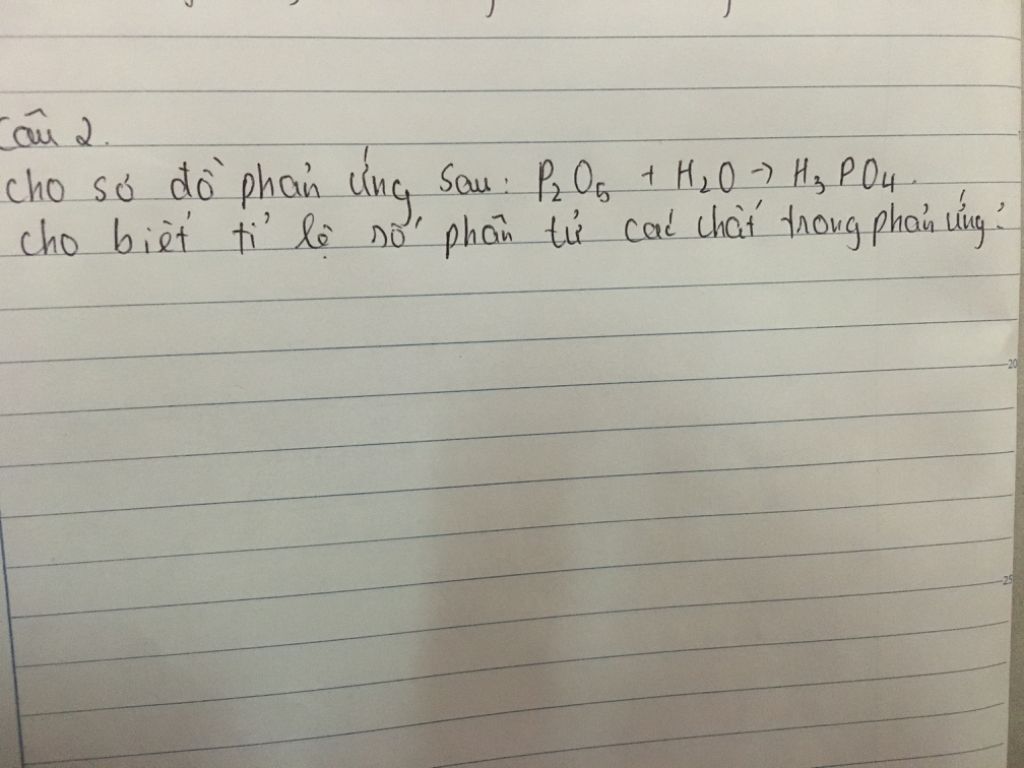 Câu 2.
cho sơ đồ phản ứng sau: P₂O₅ + H₂O → H₃PO₄.
cho biết tỉ lệ số phân tử các chất trong phản ứng?
20
25